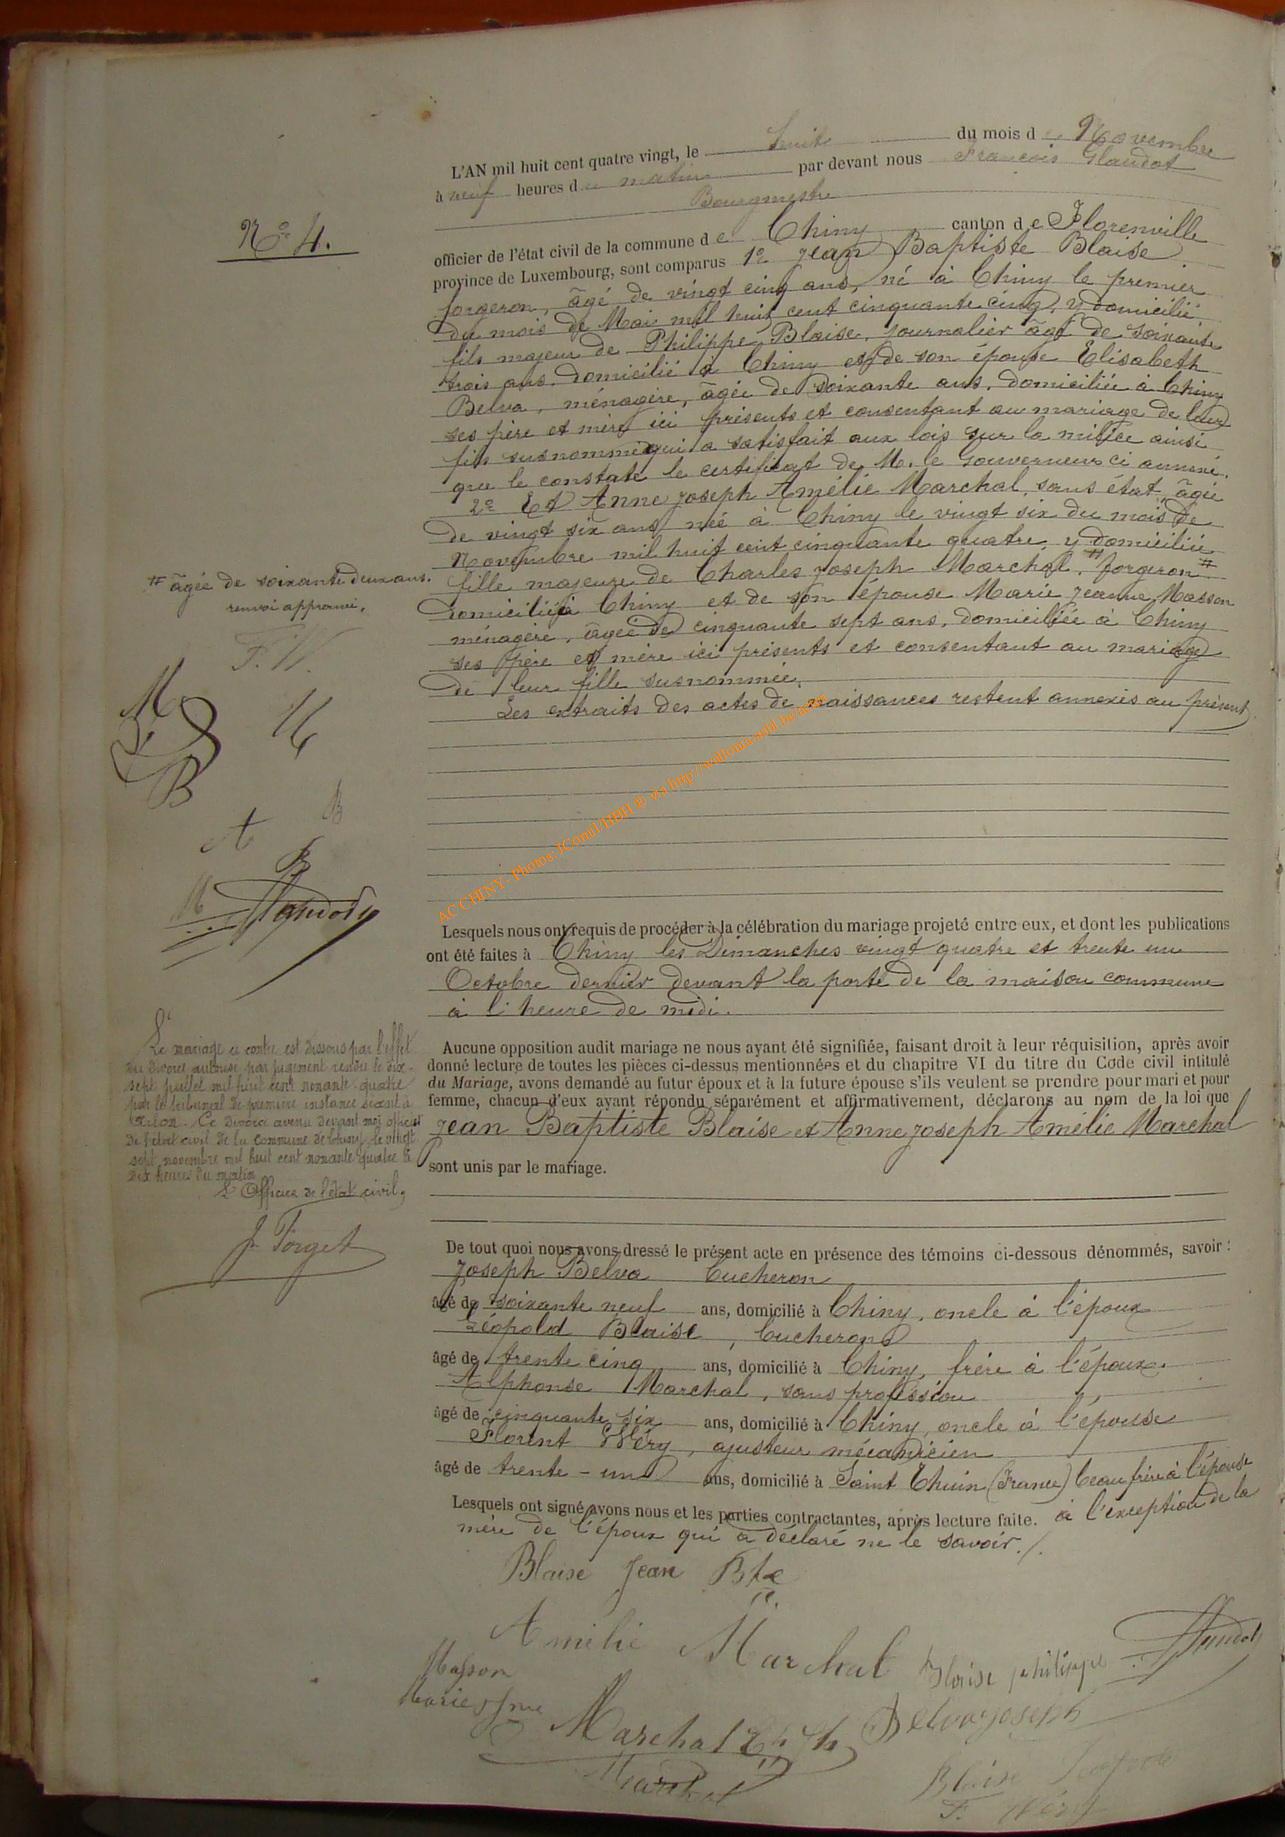 L'AN mil huit cent quatre vingt, le huit du mois de Novembre
à neuf heures du matin par devant nous François Glaudot
Bourgmestre
officier de l'état civil de la commune de Chiny canton de Florenville
province de Luxembourg, sont comparus 1° Jean Baptiste Blaise
forgeron, âgé de vingt cinq ans, né à Chiny le premier
du mois de Mai mil huit cent cinquante cinq, y domicilié
fils majeur de Philippe Blaise, journalier âgé de soixante
trois ans, domicilié à Chiny et de son épouse Elisabeth
Belva, ménagère, âgée de soixante ans, domiciliée à Chiny
ses père et mère ici présents et consentant au mariage de leur
fils susnommé qui a satisfait aux lois sur la milice ainsi
que le constate le certificat de M. le Gouverneur ci annexé.
2° Et Anne Joseph Amélie Marchal, sans état, âgée
de vingt six ans, née à Chiny le vingt six du mois de
Novembre mil huit cent cinquante quatre, y domiciliée
fille majeure de Charles Joseph Marchal, # forgeron #
domicilié à Chiny et de son épouse Marie Jeanne Masson
ménagère, âgée de cinquante sept ans, domiciliée à Chiny
ses père et mère ici présents et consentant au mariage
de leur fille susnommée.
Les extraits des actes de naissances restent annexés au présent
N° 4.
# âgée de soixante deux ans.
renvoi approuvé.
F. W.
M
B
A B
B
M Glaudot
Lesquels nous ont requis de procéder à la célébration du mariage projeté entre eux, et dont les publications
ont été faites à Chiny les Dimanches vingt quatre et trente un
Octobre dernier devant la porte de la maison commune
à l'heure de midi.
Aucune opposition audit mariage ne nous ayant été signifiée, faisant droit à leur réquisition, après avoir
donné lecture de toutes les pièces ci-dessus mentionnées et du chapitre VI du titre du Code civil intitulé
du Mariage, avons demandé au futur époux et à la future épouse s'ils veulent se prendre pour mari et pour
femme, chacun d'eux ayant répondu séparément et affirmativement, déclarons au nom de la loi que
Jean Baptiste Blaise et Anne Joseph Amélie Marchal
sont unis par le mariage.
Le mariage ci contre est dissous par l'effet
du divorce autorisé par jugement rendu le dix-
sept juillet mil huit cent nonante-quatre
par le tribunal de première instance séant à
Arlon. Ce divorce avenu devant moi officier
de l'état civil de la commune de Chiny, le vingt
sept novembre mil huit cent nonante-quatre à
dix heures du matin
L'Officier de l'état civil,
J. Forget
De tout quoi nous avons dressé le présent acte en présence des témoins ci-dessous dénommés, savoir :
Joseph Belva bucheron
âgé de soixante neuf ans, domicilié à Chiny, oncle à l'époux
Léopold Blaise, bucheron
âgé de trente cinq ans, domicilié à Chiny, frère à l'époux.
Alphonse Marchal, sans profession
âgé de cinquante six ans, domicilié à Chiny, oncle à l'épouse
Florent Wéry, ajusteur mécanicien
âgé de trente-un ans, domicilié à Saint (France) beau frère à l'épouse
Lesquels ont signé avons nous et les parties contractantes, après lecture faite. à l'exception de la
mère de l'époux qui a déclaré ne le savoir./.
Blaise Jean Bte
Amélie Marchal
Blaise philippe
Glaudot
Masson
Marie Jne
Marchal Ch Jh
Belva Joseph
Marchal
Blaise Léopold
F. Wéry
AC CHINY - Photos